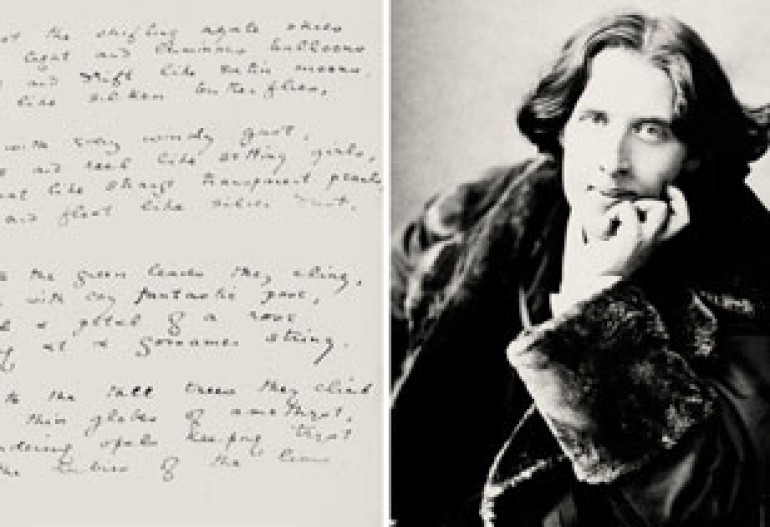 the shifting agate skies
light and luminous balloons
and drift like satin moons
like silken butterflies,
with every windy gust,
and reel like girls,
like strange transparent pearls
and float like silver dust.
the green leaves they cling,
with coy fantastic pose,
a petal of a rose
at a gossamer string.
to the tall trees they climb
thin globes of amethyst,
opals keeping tryst
the rubies of the lime